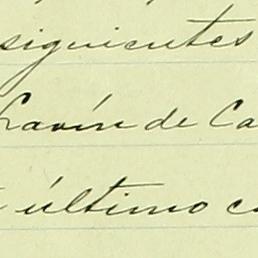 siguientes
Lavín de Ca
último co